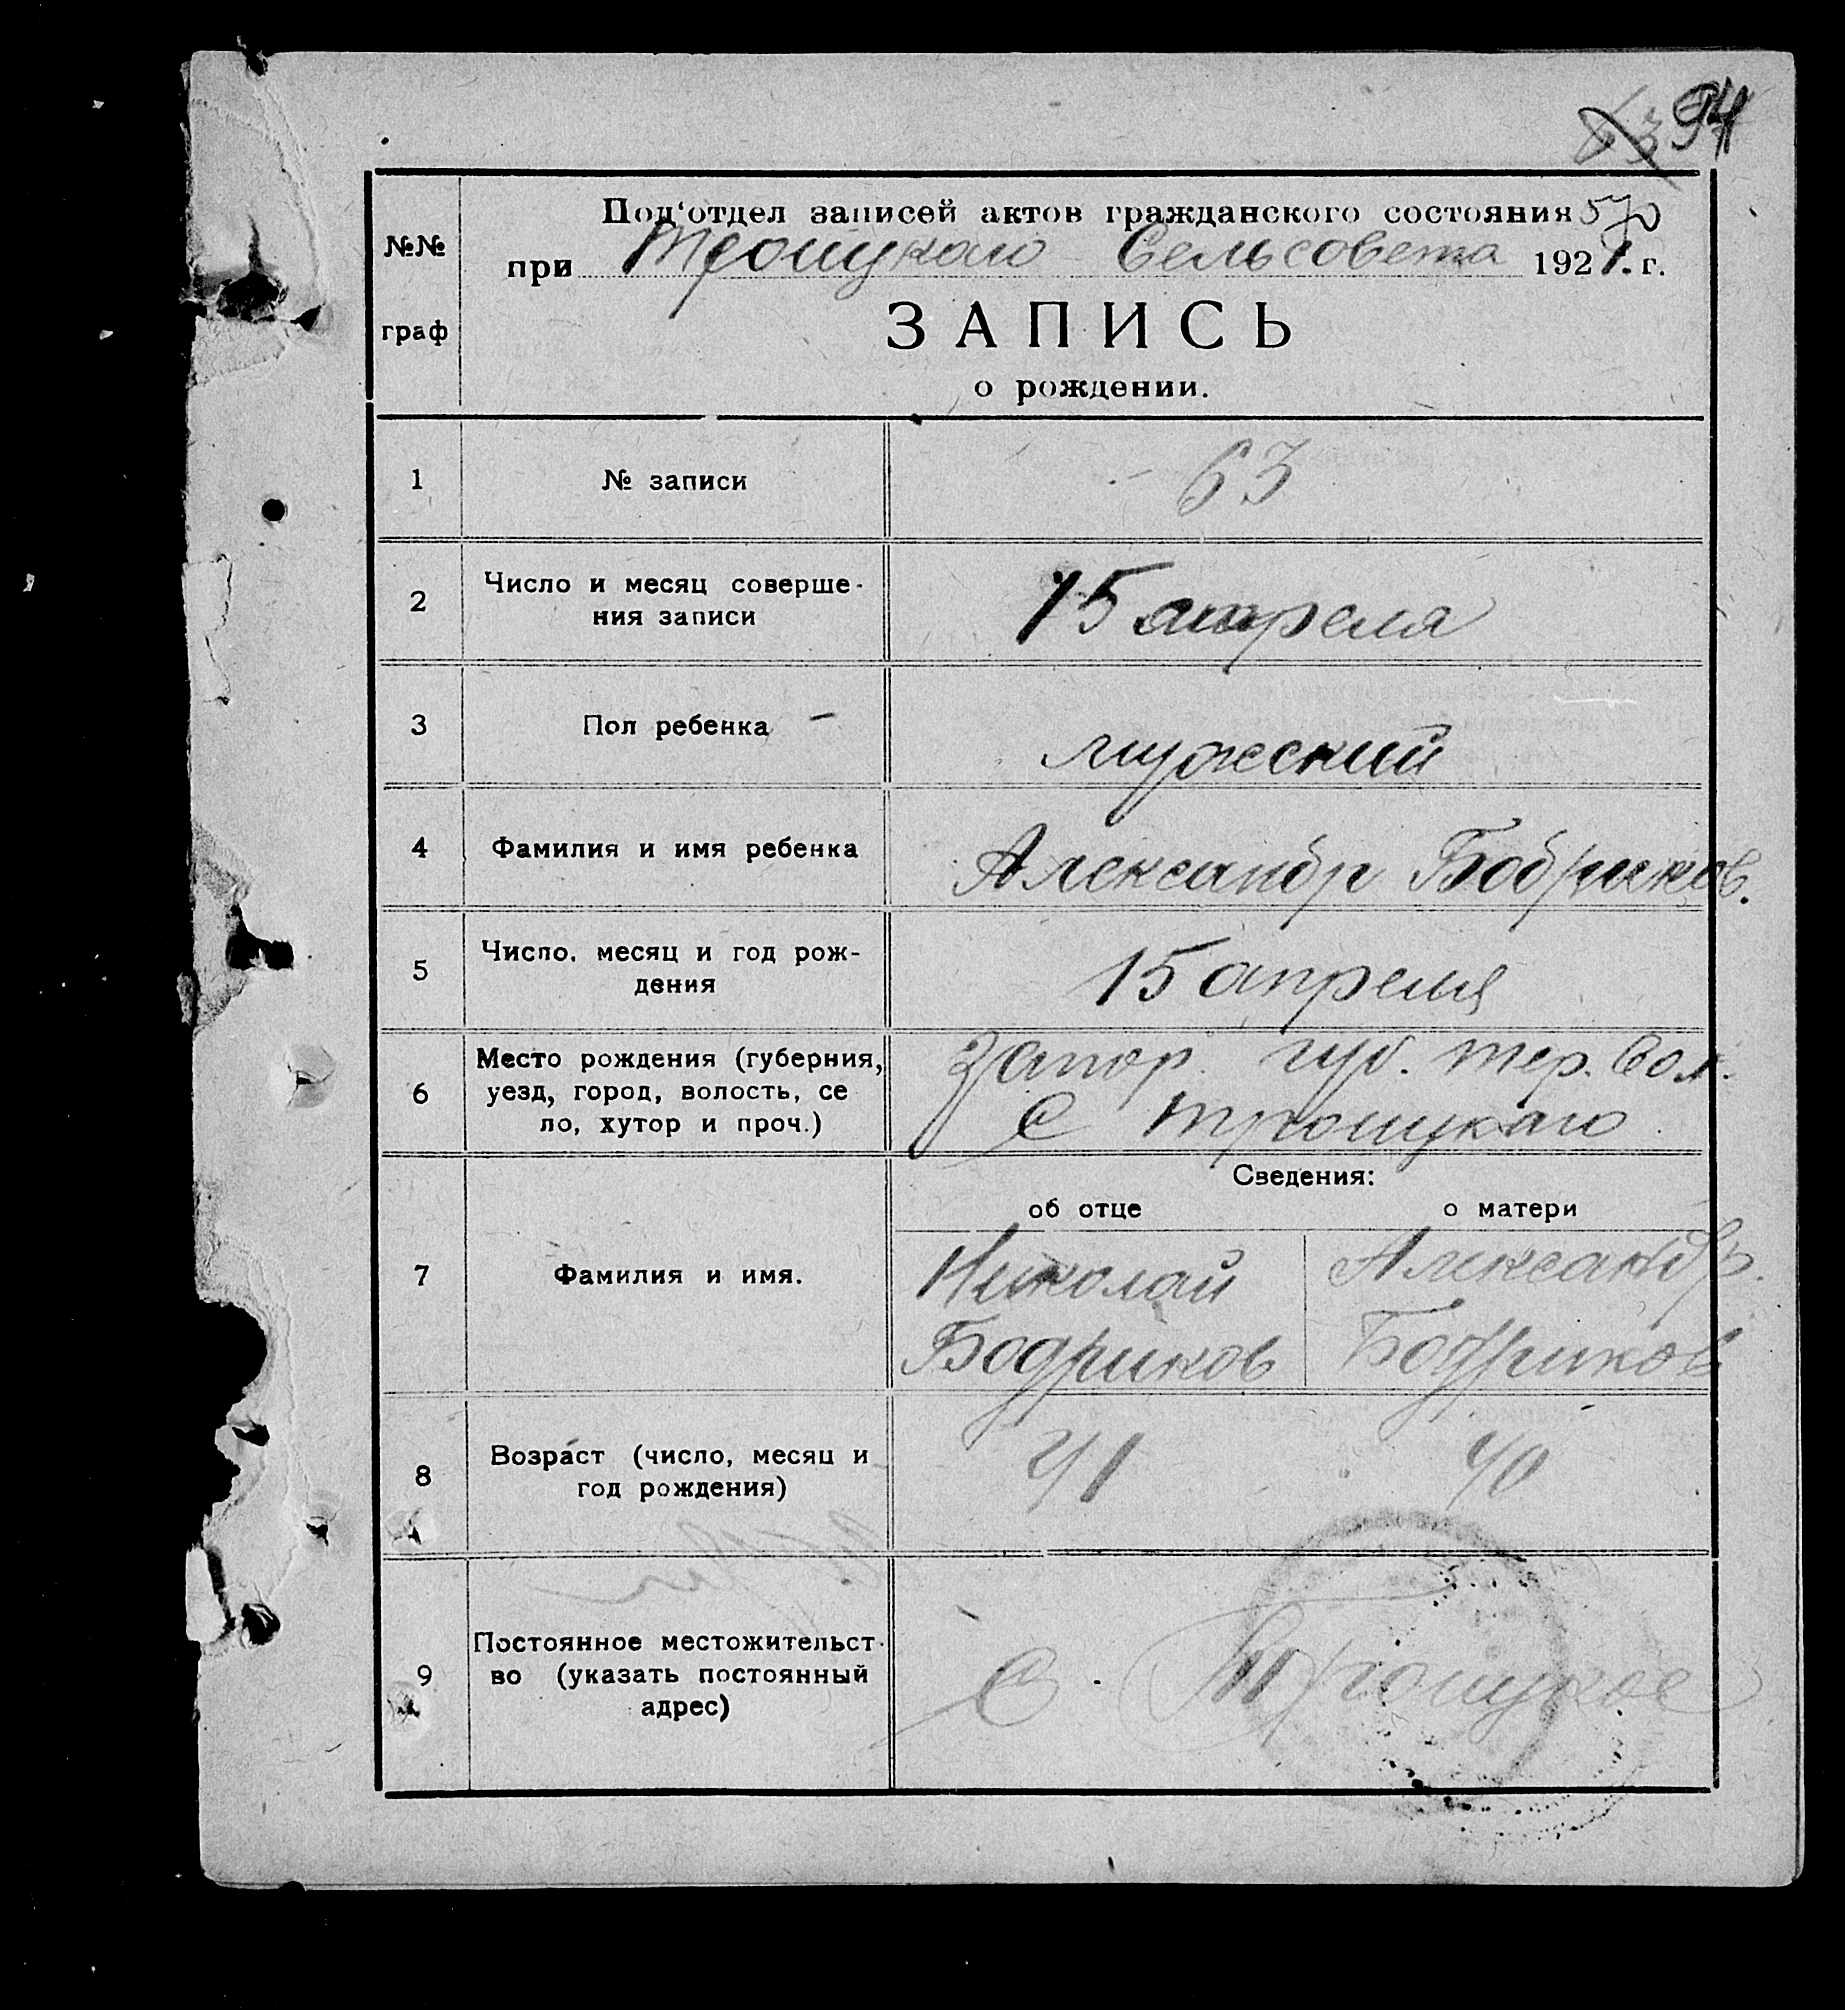 63 94
Под‘отдел записей актов гражданского состояния 570
при Троицкого Сельсовета 1921. г.
№№
граф
ЗАПИСЬ
о рождении.
1 № записи 63
2 Число и месяц соверше-
ния записи 15 апреля
3 Пол ребенка мужеский
4 Фамилия и имя ребенка Александр Бодриков.
5 Число, месяц и год рож-
дения 15 апреля
6 Место рождения (губерния,
уезд, город, волость, се
ло, хутор и проч.)
Запор. губ. тер. вол.
С Троицкого
Сведения:
об отце о матери
7 Фамилия и имя.
Николай Александр.
Бодриков Бодриков
8 Возраст (число, месяц и
год рождения) 41 40
9 Постоянное местожительст-
во (указать постоянный
адрес)
С. Троицкое